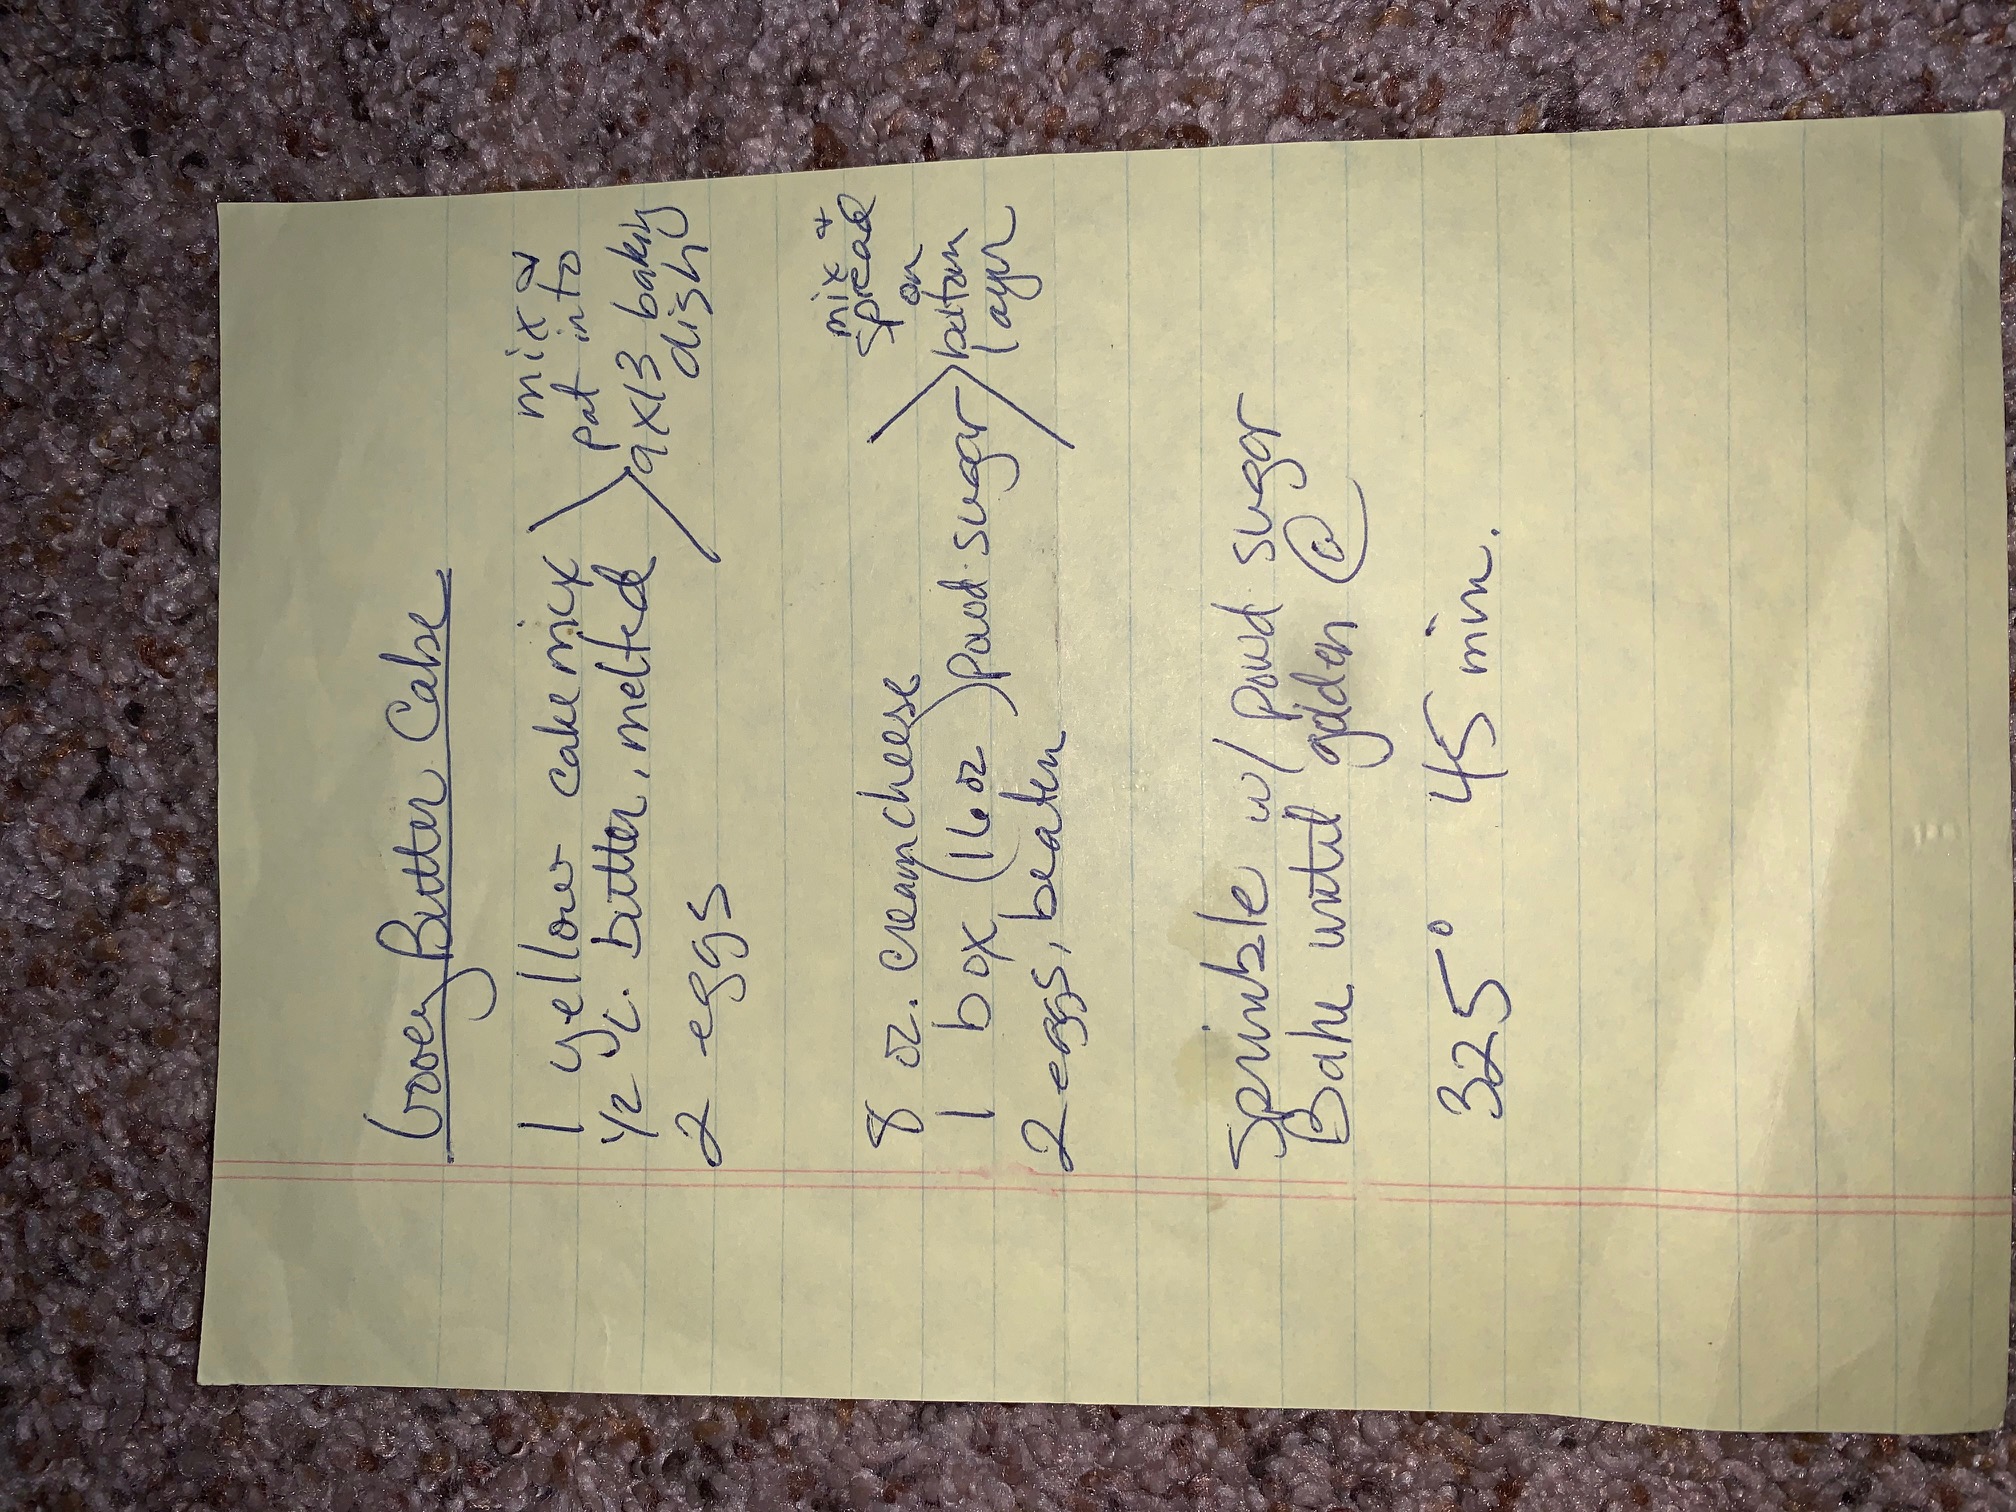 Gooey Butter Cake
1 yellow cake mix
1/2 c. butter, melted
2 eggs
mix &
pat into
9x13 baking
dish
8 oz. cream cheese
1 box (16 oz) powd. sugar
2 eggs, beaten
mix &
spread
on
bottom
layer
Sprinkle w/ powd. sugar
Bake until golden @
325° 45 min.